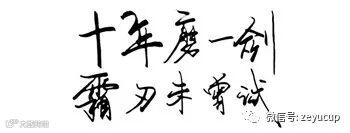 十年磨一剑
霜刃未曾试
微信号: zeyucup